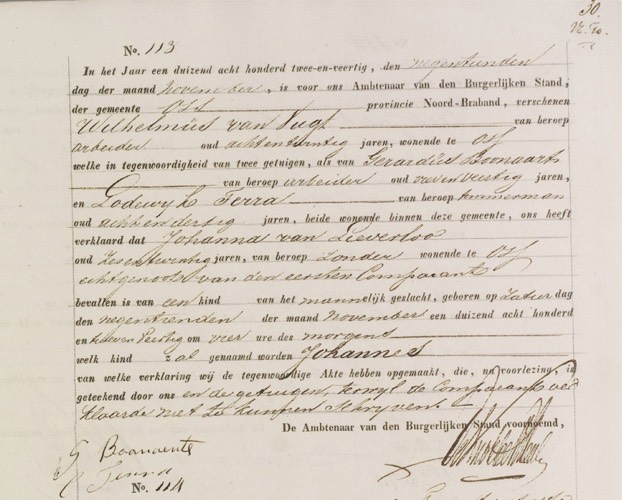 30.
No. 113
In het Jaar een duizend acht honderd twee-en-veertig, den negentienden
dag der maand November, is voor ons Ambtenaar van den Burgerlijken Stand,
der gemeente Oss provincie Noord-Braband, verschenen
Wilhelmus van Vugt van beroep
arbeider oud achtentwintig jaren, wonende te Oss
welke in tegenwoordigheid van twee getuigen, als van Gerardus Boonaarts
van beroep arbeider oud zevenveertig jaren,
en Lodewyk Terra van beroep timmerman
oud achtendertig jaren, beide wonende binnen deze gemeente, ons heeft
verklaard dat Johanna van Lieverloo
oud zesentwintig jaren, van beroep zonder wonende te Oss
echtgenoote van den eersten Comparant
bevallen is van een kind van het mannelijk geslacht, geboren op Zatur dag
den negentienden der maand November een duizend acht honderd
en twee en veertig om vier ure des morgens
welk kind zal genaamd worden Johannes
van welke verklaring wij de tegenwoordige Akte hebben opgemaakt, die, na voorlezing, is
geteekend door ons en de getuigen, terwyl de Comparant ver
klaarde niet te kunnen schryven.
De Ambtenaar van den Burgerlijken Stand voornoemd,
G Boonaerts
Terra
No. 114